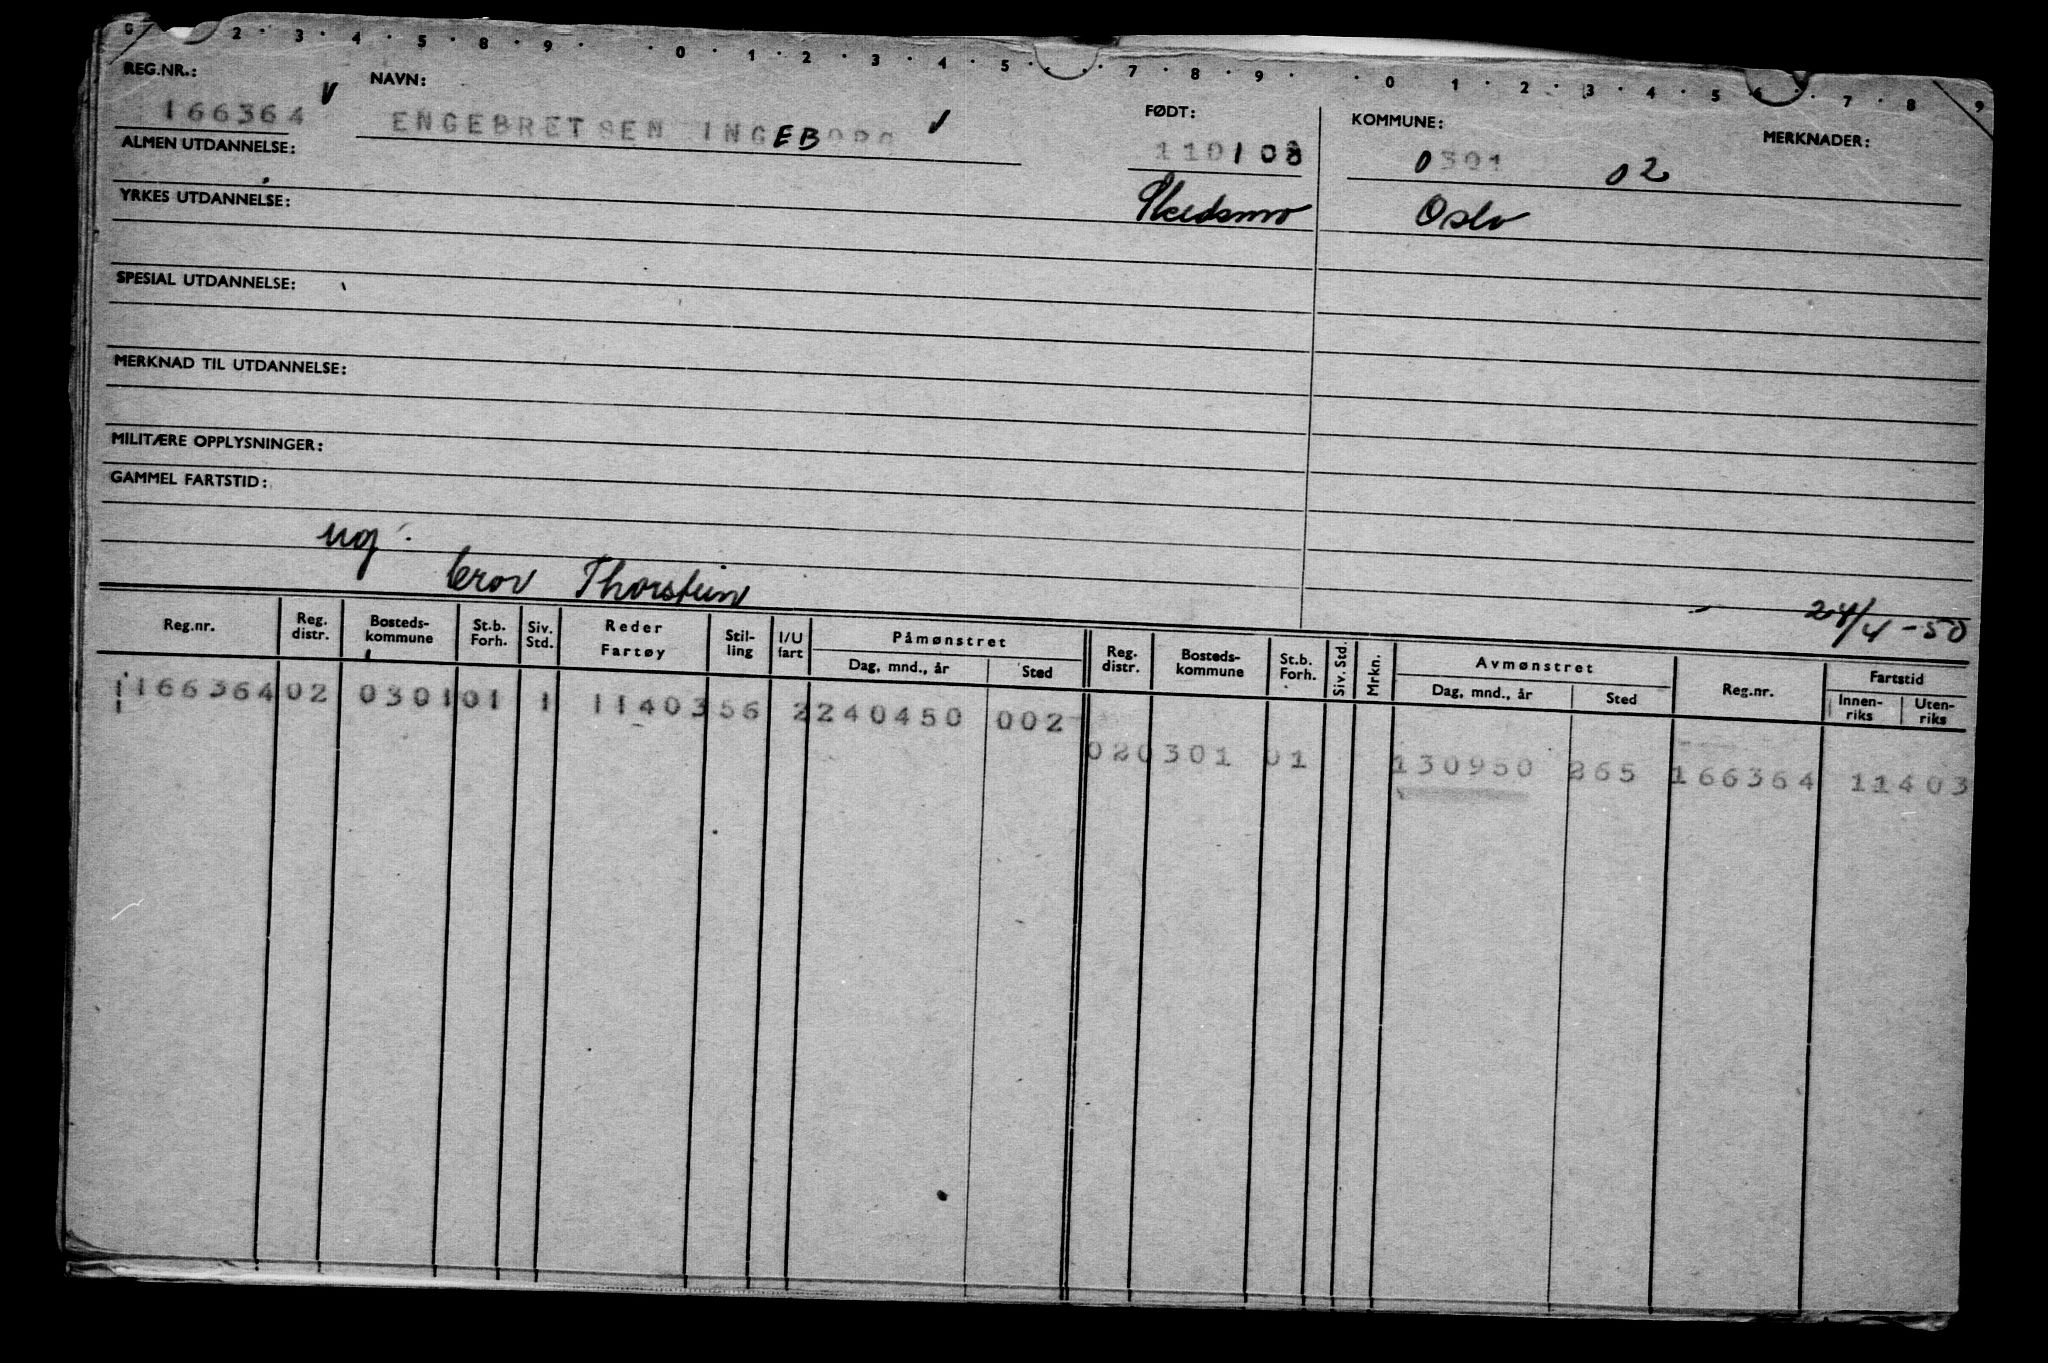 0 2 · 3 · 4 · 5 · 8 · 9 · · 0 · 1 · 2 · 3 · 4 · 5 · · · 7 · 8 · 9 · · 0 · 1 · 2 · 3 · 4 · 5 · 6 · 7 · 8 · 9
REG.NR.: NAVN: FØDT: KOMMUNE: MERKNADER:
166364 ENGEBRETSEN INGEBORG 110108 0301 02
ALMEN UTDANNELSE:
YRKES UTDANNELSE: Skedsmo Oslo
SPESIAL UTDANNELSE:
MERKNAD TIL UTDANNELSE:
MILITÆRE OPPLYSNINGER:
GAMMEL FARTSTID:
ug.
bror Thorstein 24/4-50
Reg.nr. Reg. distr. Bosteds-kommune St.b. Forh. Siv. Std. Reder Fartøy Stil-ling I/U fart Påmønstret Dag, mnd., år Sted Reg. distr. Bosteds-kommune St.b. Forh. Siv. Std. Mrkn. Avmønstret Dag, mnd., år Sted Reg.nr. Fartstid Innen-riks Uten-riks
1166364 02 0301 01 1 11403 56 2 240450 002
02 0301 01 130950 265 166364 11403